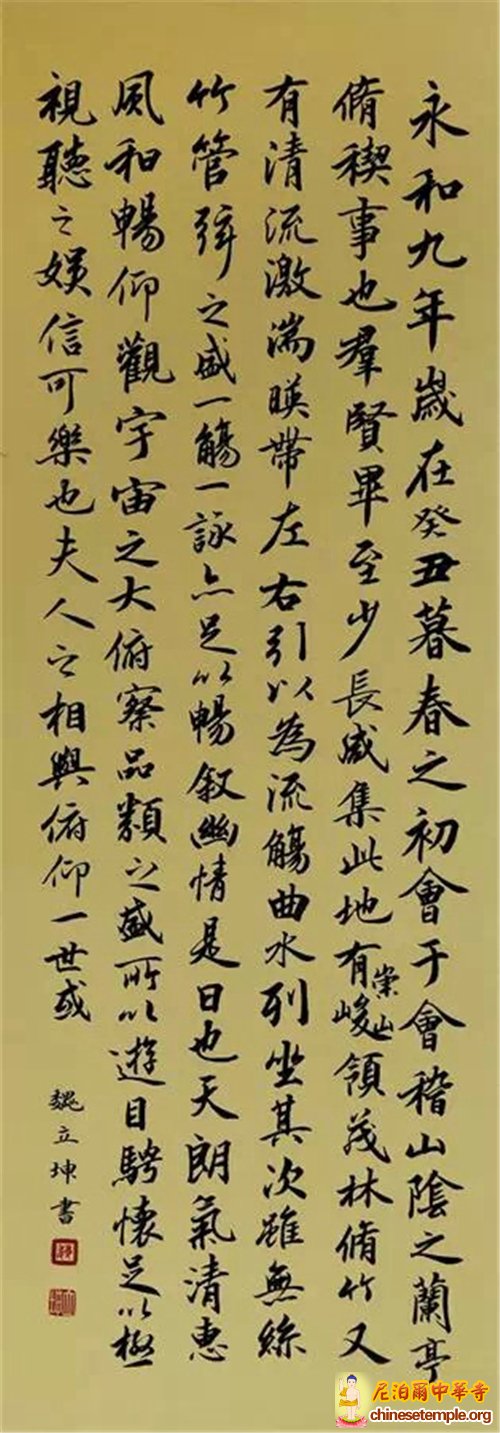 永和九年歲在癸丑暮春之初會于會稽山陰之蘭亭
脩稧事也羣賢畢至少長咸集此地有崇山峻領茂林脩竹又
有清流激湍暎帶左右引以為流觴曲水列坐其次雖無絲
竹管弦之盛一觴一詠亦足以暢敘幽情是日也天朗氣清惠
風和暢仰觀宇宙之大俯察品類之盛所以遊目騁懷足以極
視聽之娛信可樂也夫人之相與俯仰一世或
魏立坤書
尼泊爾中華寺
chinesetemple.org